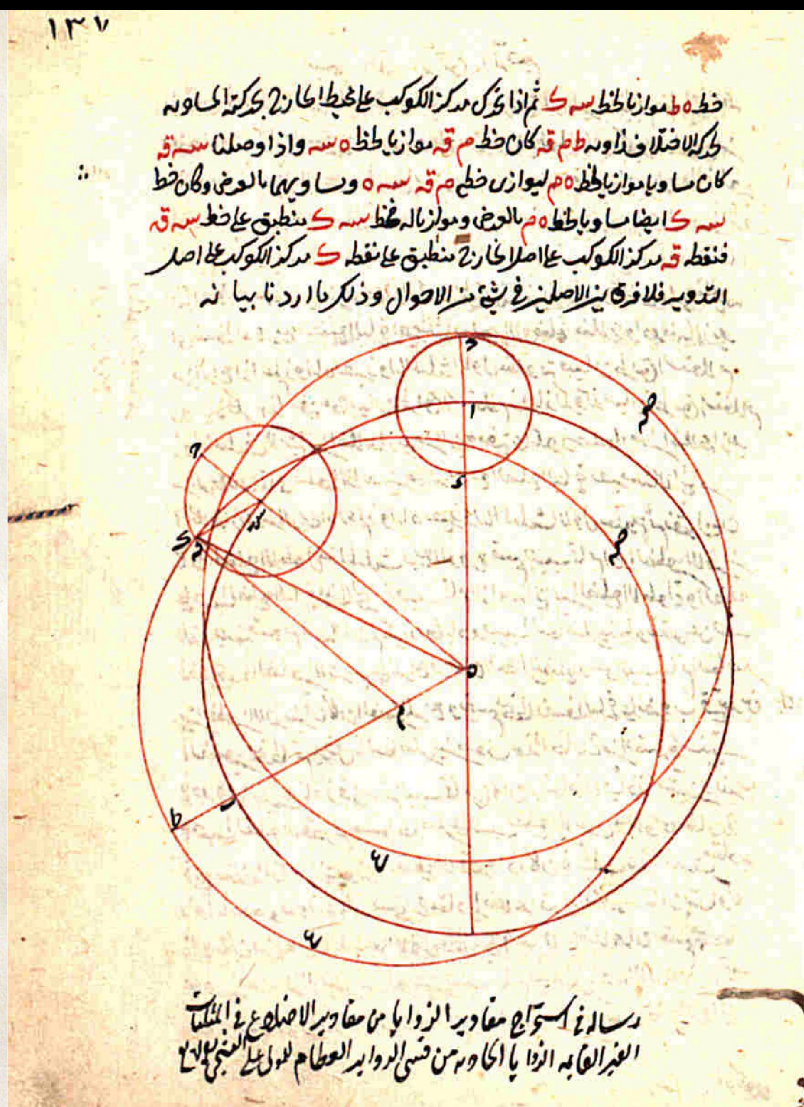 ١٣٧
خط ه ط موازيا لخط سه ك ثم اذا تحرك مركز الكوكب على محيط الخارج بحركته المساويه
لحركة الاختلاف زاويه ط م قه كان خط م قه موازيا لخط ه سه واذا وصلنا سه قه
كان مساويا موازيا لخط ه م لتوازى خطى م قه سه ه وتساويهما بالفرض وكان خط
سه ك ايضا مساويا لخط ه م بالفرض وموازيا له فخط سه ك منطبق على خط سه قه
فنقطه قه مركز الكوكب على اصل الخارج منطبق على نقطه ك مركز الكوكب على اصل
التدوير فلا فرق بين الاصلين فى شئ من الاحوال وذلك ما اردنا بيانه
ح
صه
ا
ح
د
سه
صه
ك
قه
ه
م
ط
ر
ع
ع
رساله فى استخراج مقادير الزوايا من مقادير الاضلاع فى المثلثات
الغير القايمه الزوايا الحادثه من قسى الدواير العظام للمولى على